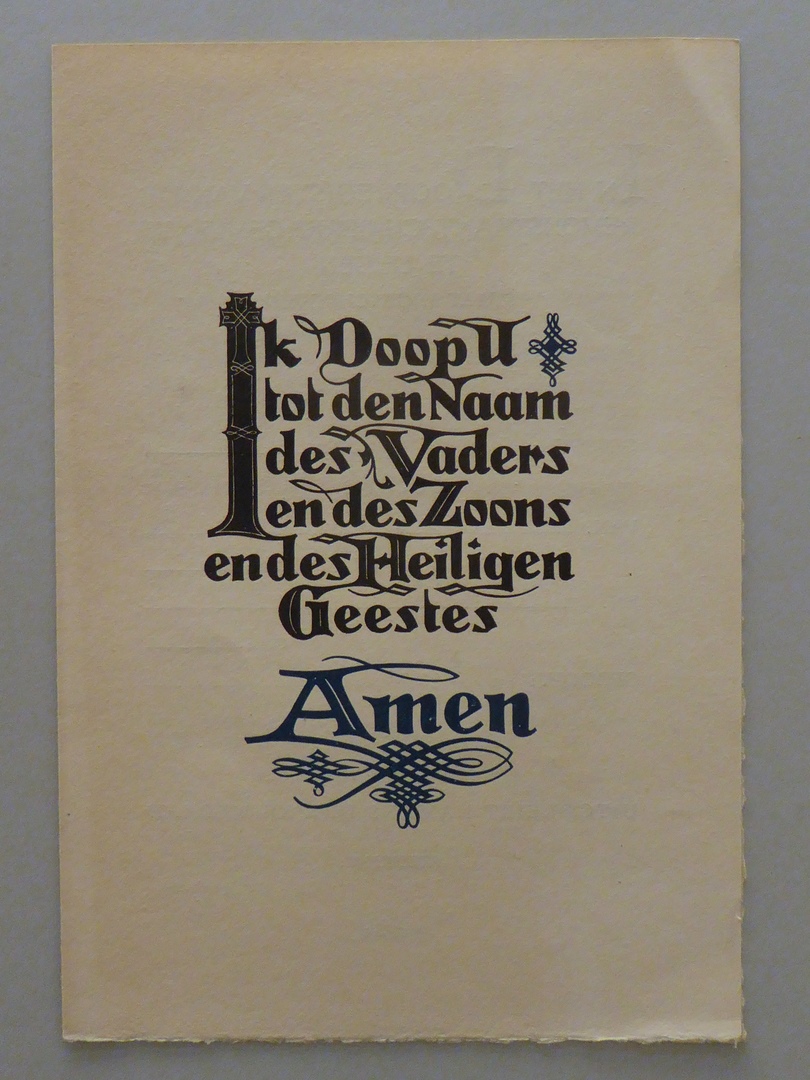 Ik Doop U
tot den Naam
des Vaders
en des Zoons
en des Heiligen
Geestes
Amen